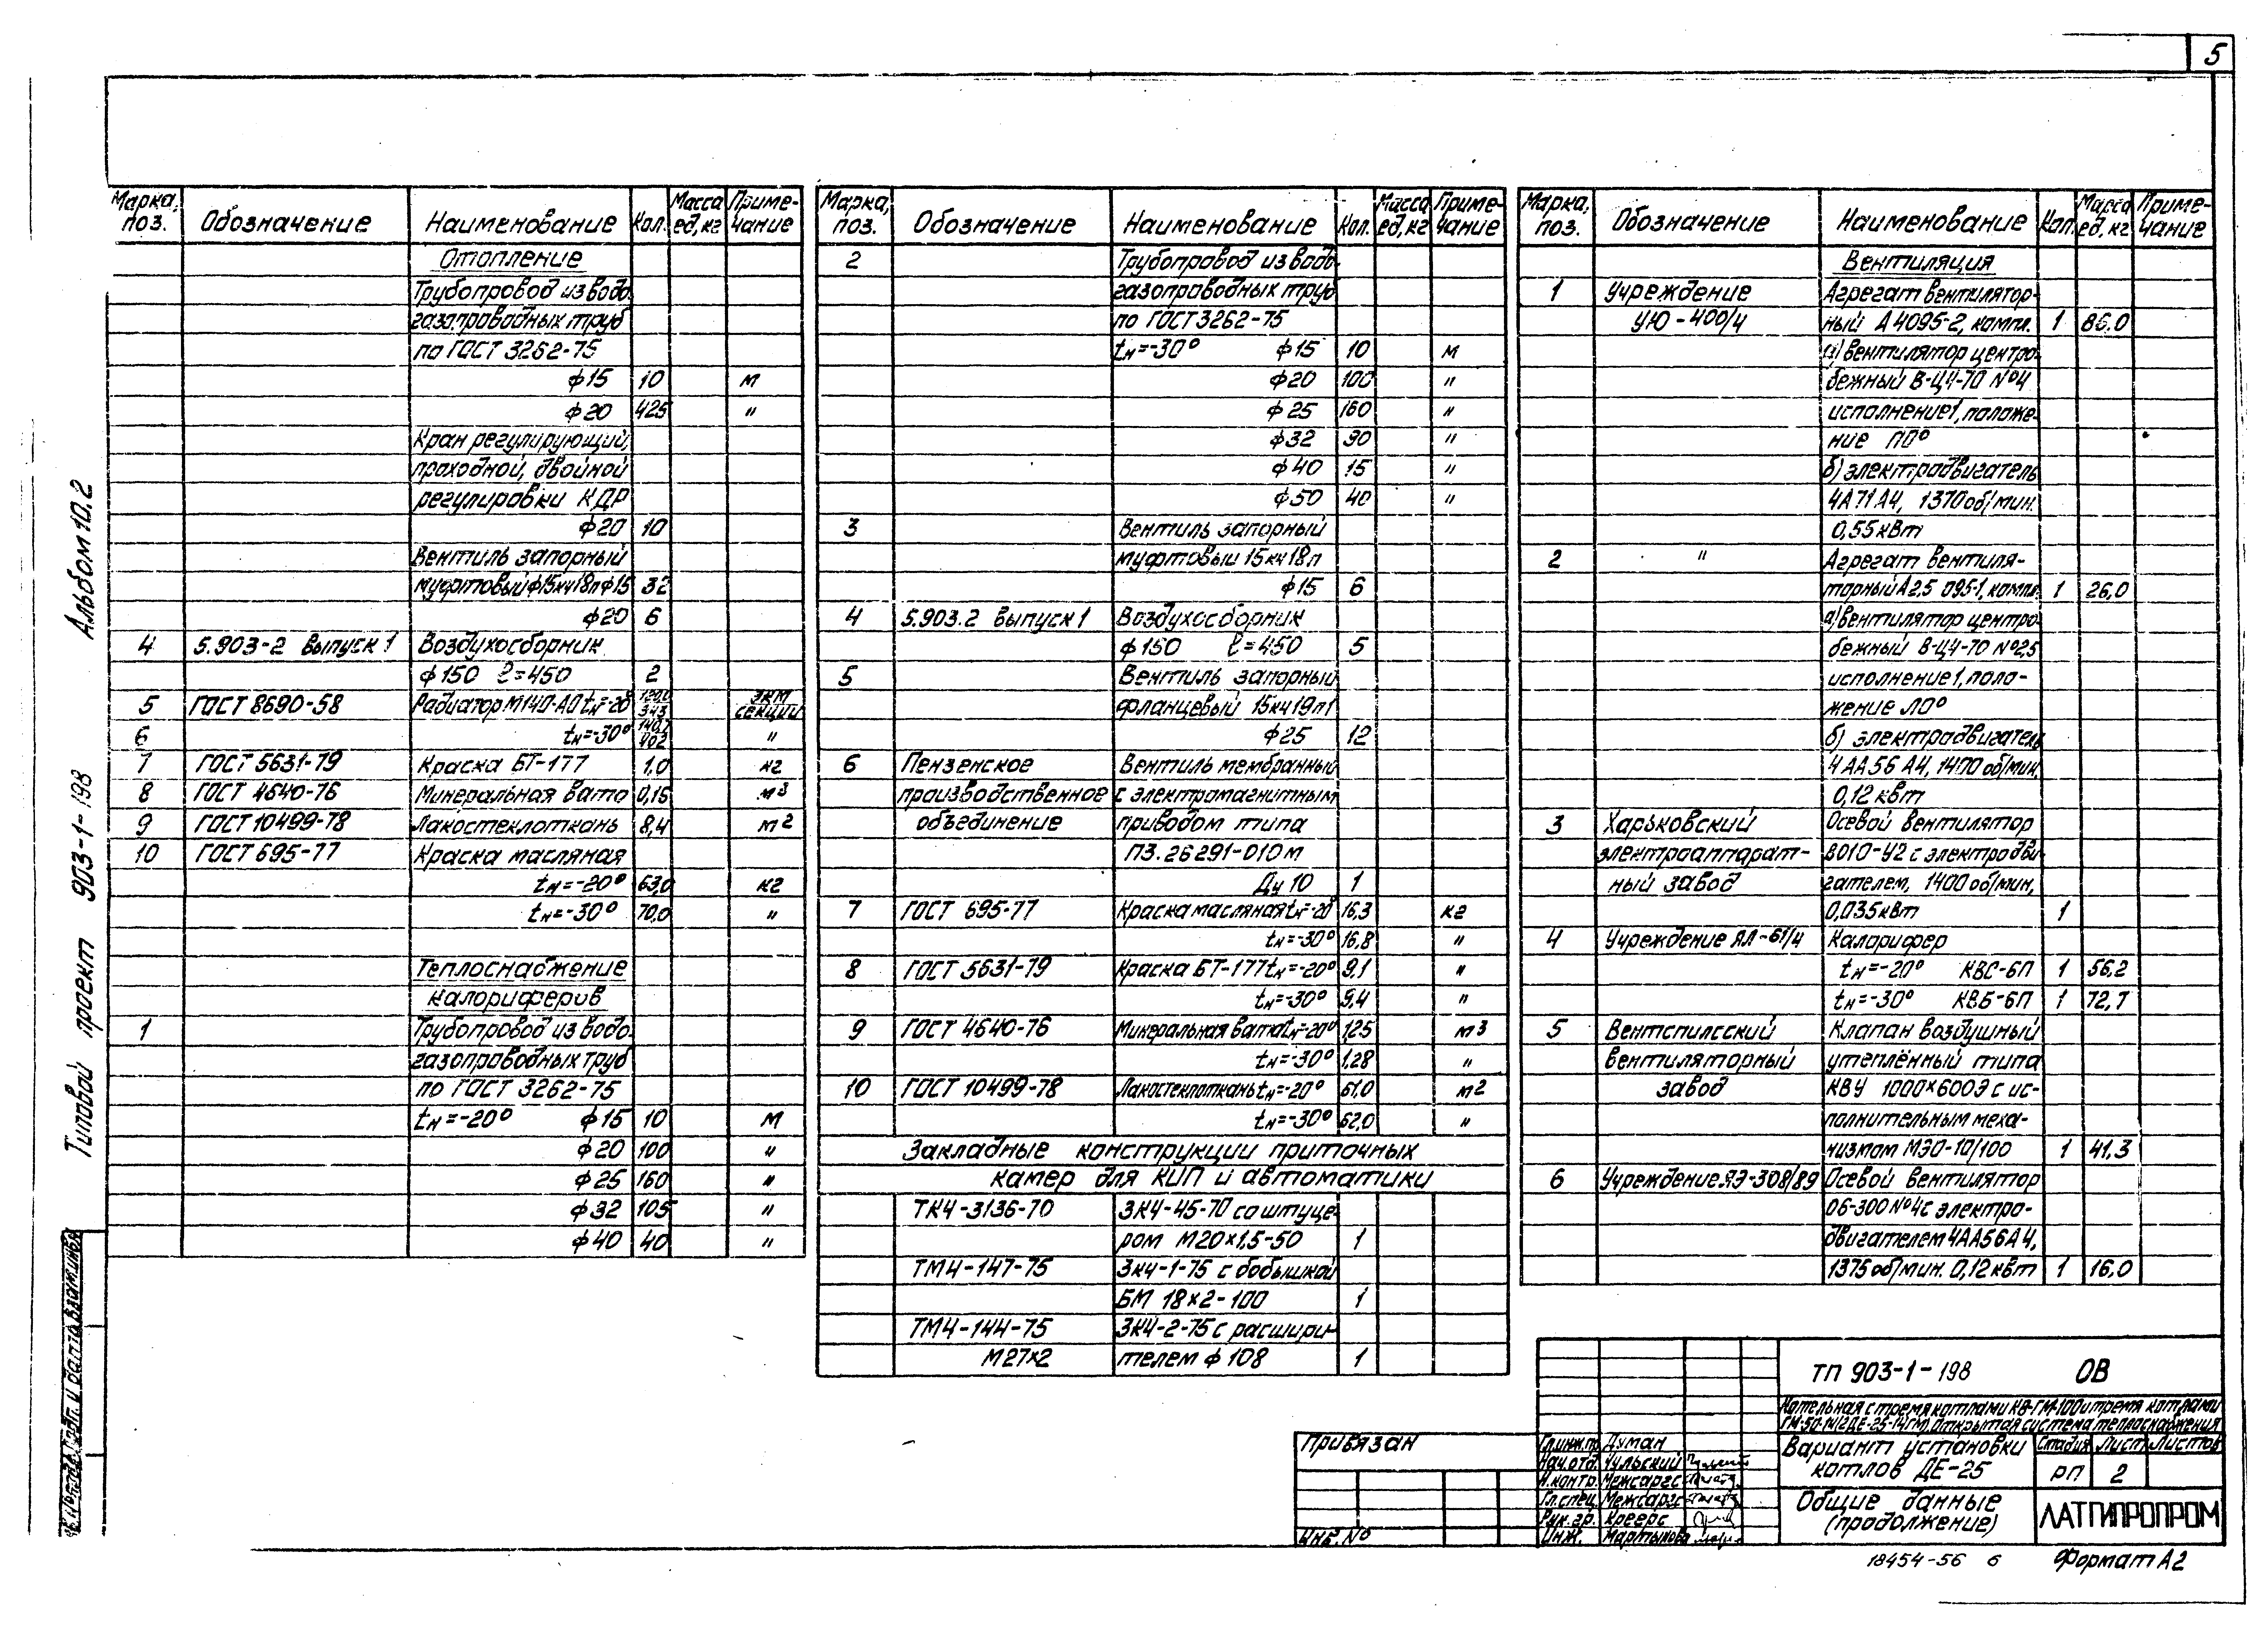 5
Альбом 10.2
Типовой проект 903-1-198
Марка, поз. Обозначение Наименование Кол. Масса ед, кг Приме-чание
Отопление
Трубопровод из водо-
газопроводных труб
по ГОСТ 3262-75
ф15 10 м
ф20 425 "
Кран регулирующий,
проходной, двойной
регулировки КДР
ф20 10
Вентиль запорный
муфтовый ф15кч18п ф15 32
ф20 6
4 5.903-2 выпуск 1 Воздухосборник
ф150 ℓ=450 2
5 ГОСТ 8690-58 Радиатор М140-АО tн=-20° 343 экм секции
6 tн=-30° 140,7 402 "
7 ГОСТ 5631-79 Краска БТ-177 1,0 кг
8 ГОСТ 4640-76 Минеральная вата 0,15 м3
9 ГОСТ 10499-78 Лакостеклоткань 8,4 м2
10 ГОСТ 695-77 Краска масляная
tн=-20° 63,0 кг
tн=-30° 70,0 "
Теплоснабжение
калориферов
1 Трубопровод из водо-
газопроводных труб
по ГОСТ 3262-75
tн=-20° ф15 10 м
ф20 100 "
ф25 160 "
ф32 105 "
ф40 40 "
Марка, поз. Обозначение Наименование Кол. Масса ед, кг Приме-чание
2 Трубопровод из водо-
газопроводных труб
по ГОСТ 3262-75
tн=-30° ф15 10 м
ф20 100 "
ф25 160 "
ф32 90 "
ф40 15 "
ф50 40 "
3 Вентиль запорный
муфтовый 15кч18п
ф15 6
4 5.903.2 выпуск 1 Воздухосборник
ф150 ℓ=450 5
5 Вентиль запорный
фланцевый 15кч19п1
ф25 12
6 Пензенское Вентиль мембранный
производственное с электромагнитным
объединение приводом типа
ПЗ.26291-010м
Ду 10 1
7 ГОСТ 695-77 Краска масляная tн=-20° 16,3 кг
tн=-30° 16,8 "
8 ГОСТ 5631-79 Краска БТ-177 tн=-20° 9,1 "
tн=-30° 9,4 "
9 ГОСТ 4640-76 Минеральная вата tн=-20° 1,25 м3
tн=-30° 1,28 "
10 ГОСТ 10499-78 Лакостеклоткань tн=-20° 61,0 м2
tн=-30° 62,0 "
Закладные конструкции приточных
камер для КИП и автоматики
ТК4-3136-70 ЗК4-45-70 со штуце-
ром М20×1,5-50 1
ТМ4-147-75 ЗК4-1-75 с бобышкой
БМ 18×2-100 1
ТМ4-144-75 ЗК4-2-75 с расшири-
М27×2 телем ф 108 1
Марка, поз. Обозначение Наименование Кол. Масса ед, кг Приме-чание
Вентиляция
1 Учреждение Агрегат вентилятор-
УЮ-400/4 ный А4095-2, компл. 1 86.0
а) вентилятор центро-
бежный В-Ц4-70 №4
исполнение 1, положе-
ние П0°
б) электродвигатель
4А71А4, 1370 об/мин.
0,55 квт
2 " Агрегат вентиля-
торный А2,5 095-1, компл. 1 26,0
а) вентилятор центро-
бежный В-Ц4-70 №2,5
исполнение 1, поло-
жение Л0°
б) электродвигатель
4АА56 А4, 1400 об/мин,
0,12 квт
3 Харьковский Осевой вентилятор
электроаппарат- В010-У2 с электродви-
ный завод гателем, 1400 об/мин,
0,035 квт 1
4 Учреждение ЯЛ-61/4 Калорифер
tн=-20° КВС-6П 1 56,2
tн=-30° КВБ-6П 1 72,7
5 Вентспилсский Клапан воздушный
вентиляторный утеплённый типа
завод КВУ 1000×600Э с ис-
полнительным меха-
низмом МЭО-10/100 1 41,3
6 Учреждение ЯЭ-308/89 Осевой вентилятор
06-300 №4 с электро-
двигателем 4АА56А4,
1375 об/мин. 0,12 квт 1 16,0
ТП 903-1-198 ОВ
Котельная с тремя котлами КВ-ГМ-100 и тремя котлами
ГМ-50-14(2ДЕ-25-14ГМ). Открытая система теплоснабжения
Вариант установки котлов ДЕ-25
Стадия Лист Листов
РП 2
Общие данные
(продолжение)
ЛАТГИПРОПРОМ
Привязан
Инв. №
Гл.инж.пр. Думан
Нач.отд.
Н.контр. Межсаргс
Гл.спец. Межсаргс
Рук.гр. Креерс
Инж. Мартынова
18454-56 6
Формат А2